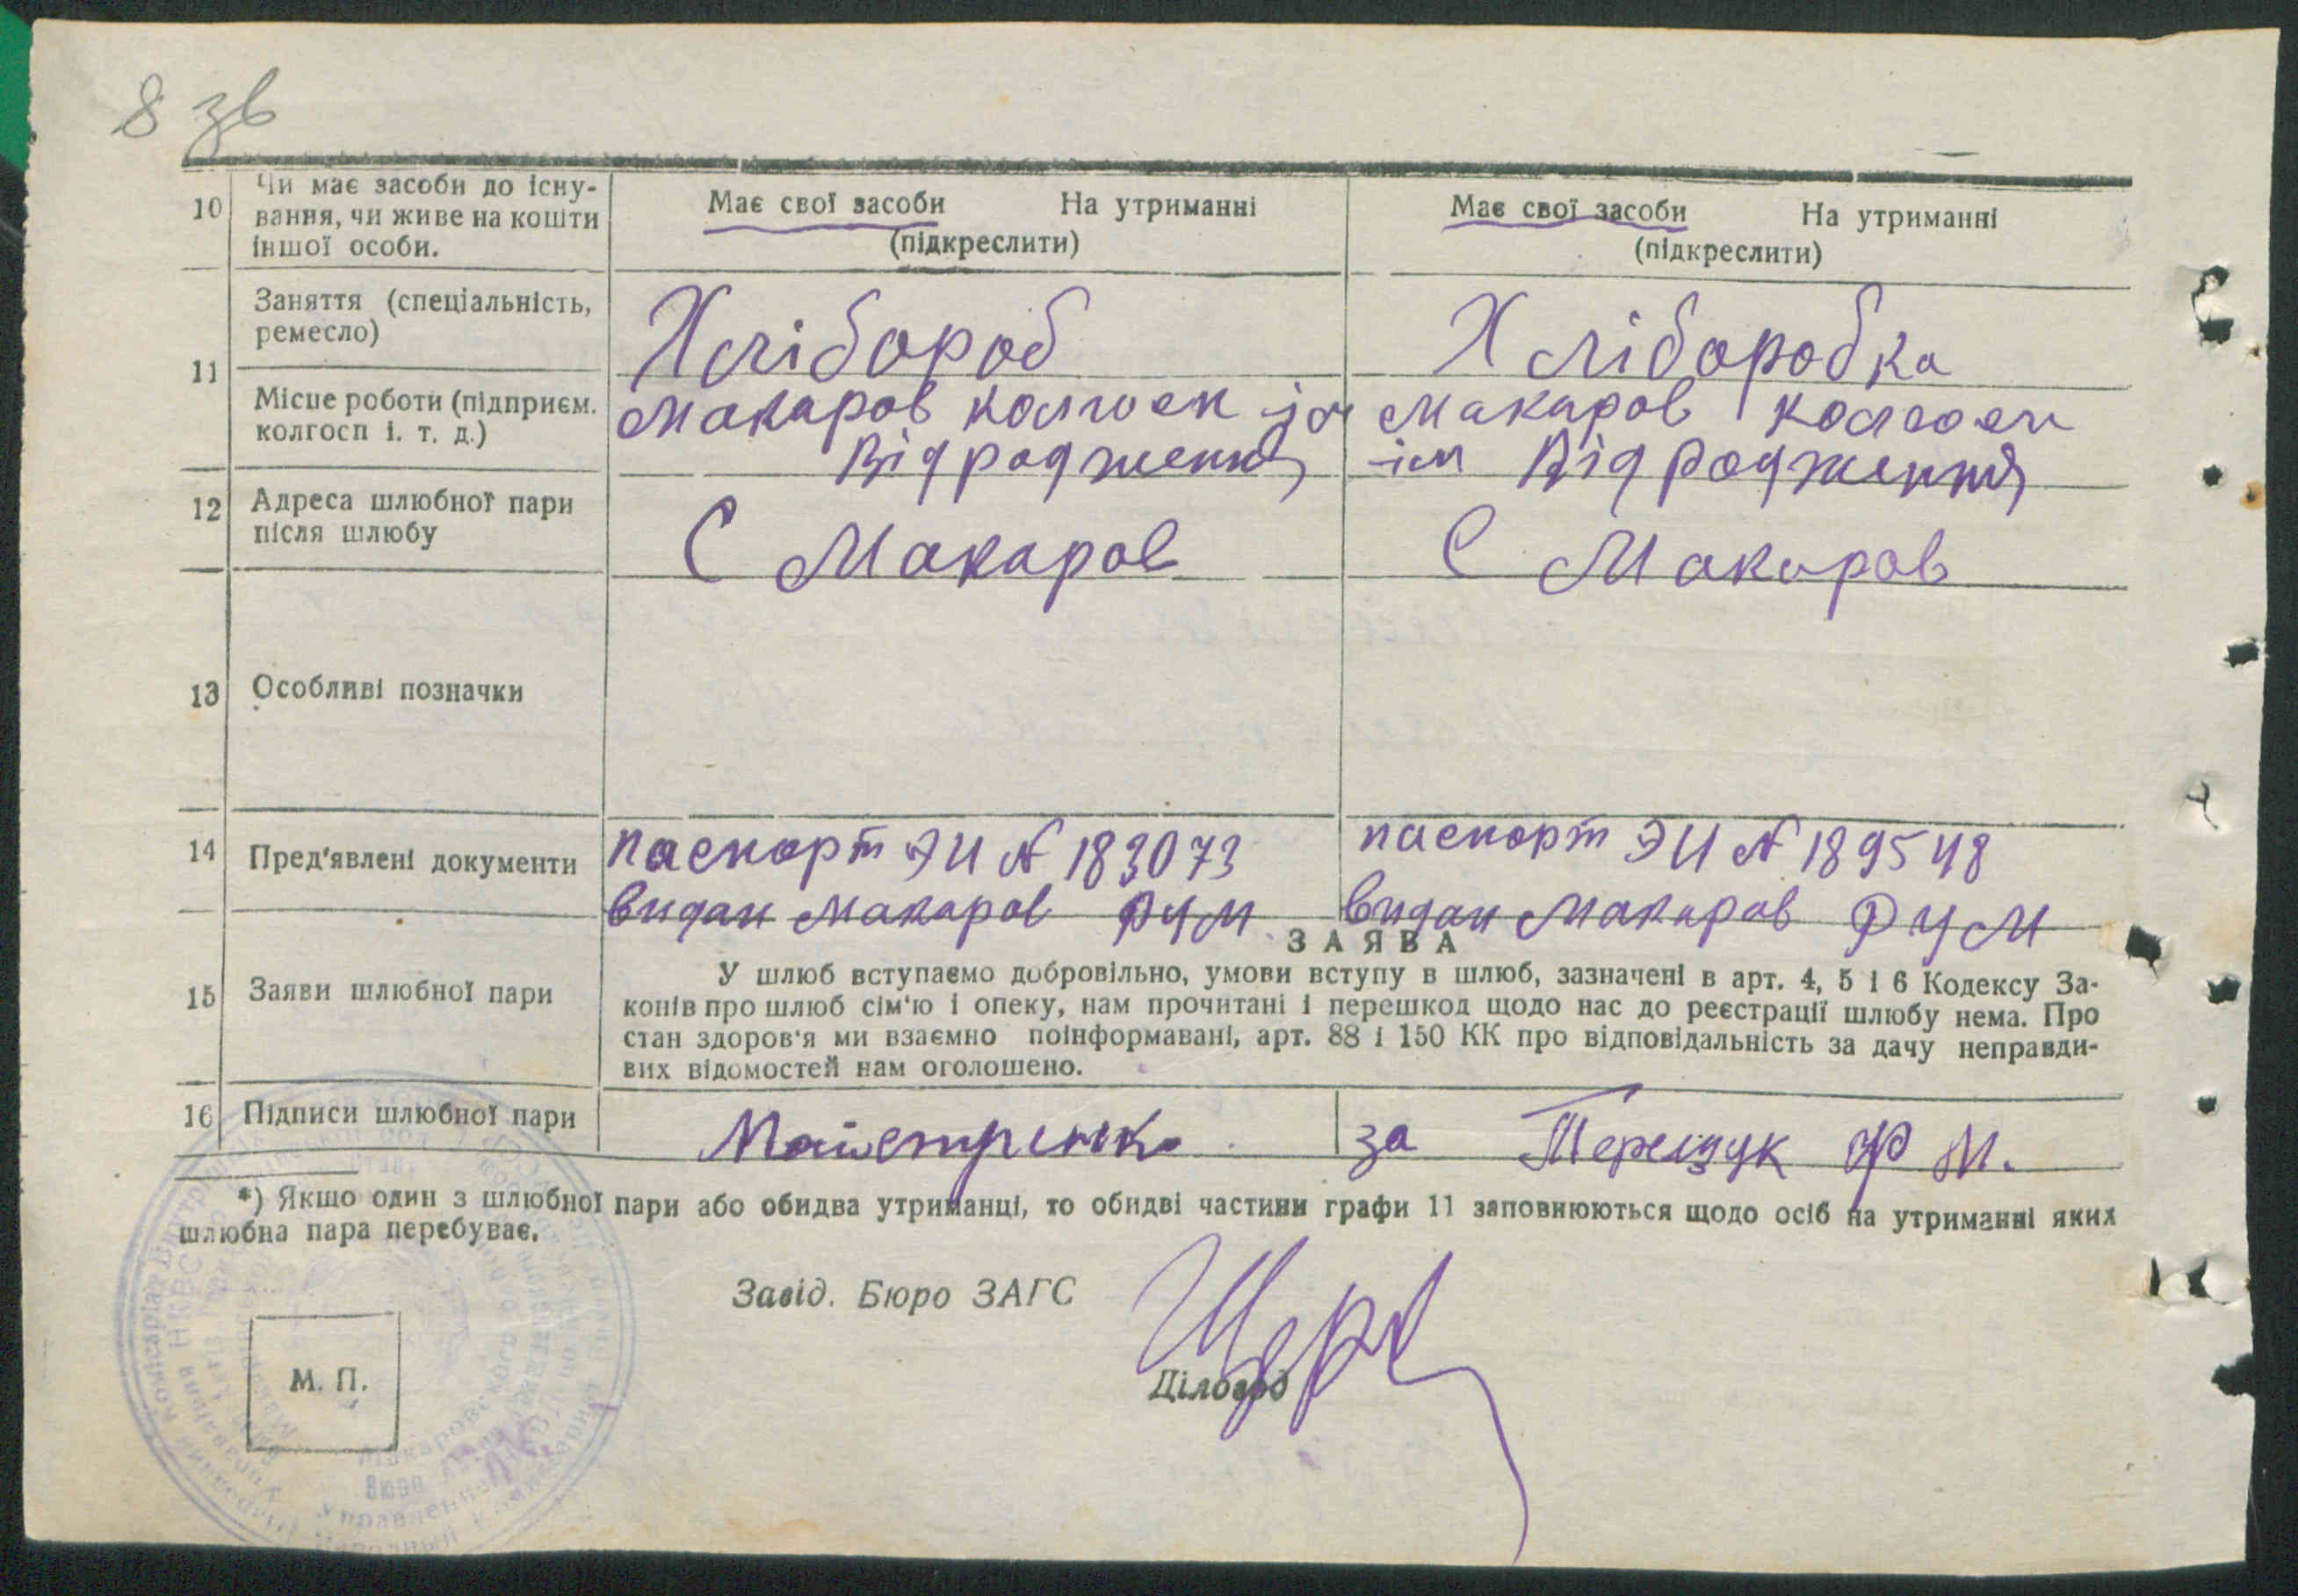 8 зв
10 Чи має засоби до існу-
вання, чи живе на кошти
іншої особи.
Має свої засоби На утриманні
(підкреслити)
Має свої засоби На утриманні
(підкреслити)
11
Заняття (спеціальність,
ремесло)
Хлібороб
Хліборобка
Місце роботи (підприєм.
колгосп і. т. д.)
Макаров колгосп ім
Відродження
Макаров колгосп
ім Відродження
12 Адреса шлюбної пари
після шлюбу
С Макаров
С Макаров
13 Особливі позначки
14 Пред'явлені документи
паспорт ЭИ № 183073
видан Макаров РУМ
паспорт ЭИ № 189548
видан Макаров РУМ
15 Заяви шлюбної пари
ЗАЯВА
У шлюб вступаємо добровільно, умови вступу в шлюб, зазначені в арт. 4, 5 і 6 Кодексу За-
конів про шлюб сім'ю і опеку, нам прочитані і перешкод щодо нас до реєстрації шлюбу нема. Про
стан здоров'я ми взаємно поінформавані, арт. 88 і 150 КК про відповідальність за дачу неправди-
вих відомостей нам оголошено.
16 Підписи шлюбної пари
Майстренко
за Терещук Ф М.
*) Якщо один з шлюбної пари або обидва утриманці, то обидві частини графи 11 заповнюються щодо осіб на утриманні яких
шлюбна пара перебуває.
Завід. Бюро ЗАГС
Діловод
М. П.